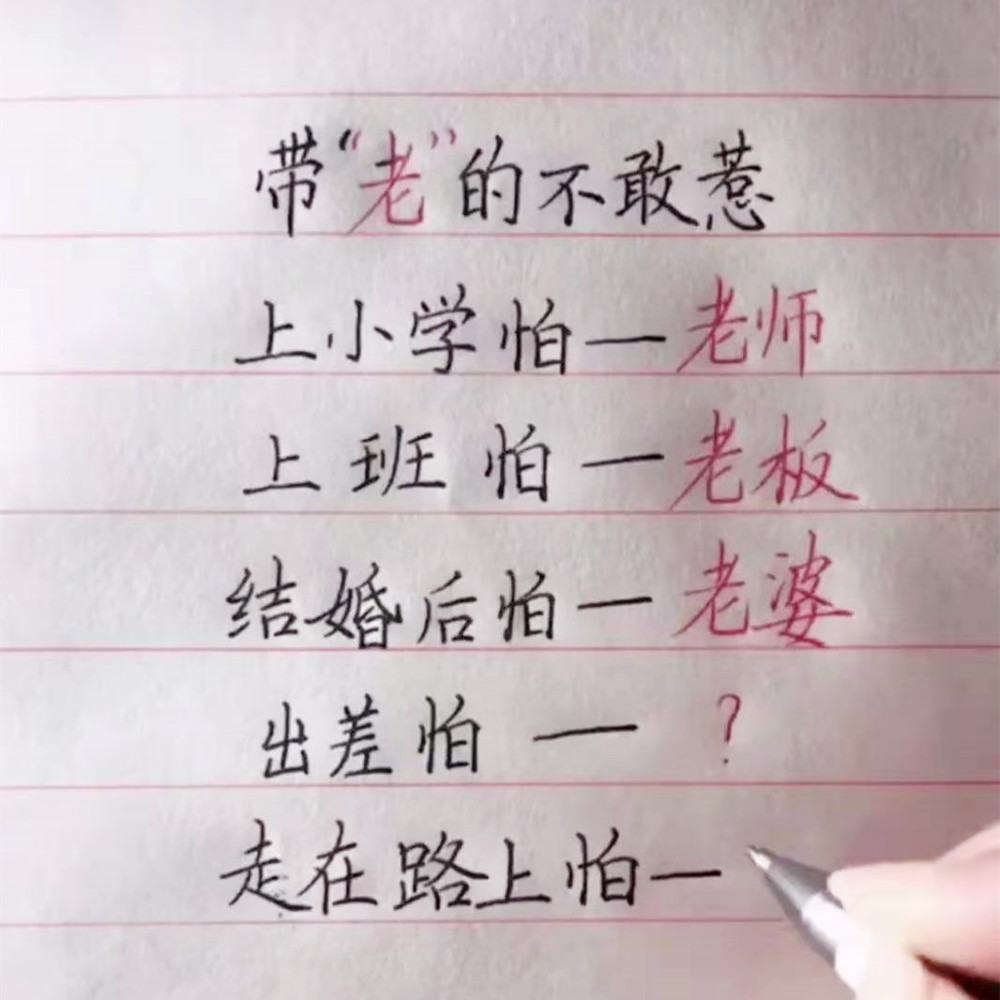 带“老”的不敢惹
上小学怕—老师
上班怕—老板
结婚后怕—老婆
出差怕—?
走在路上怕—